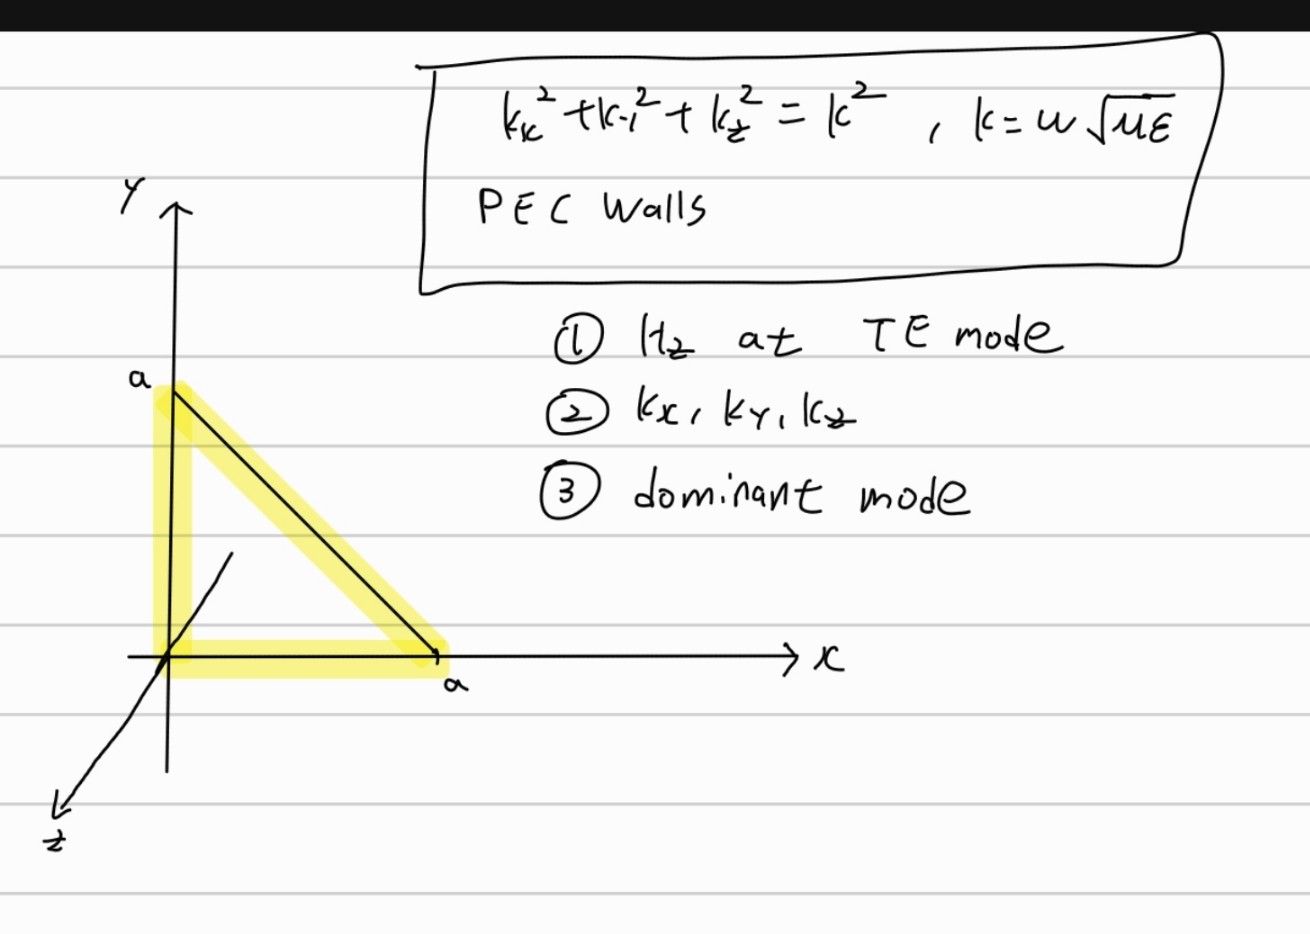 kx² + ky² + kz² = k² , k = ω√με
PEC Walls
① Hz at TE mode
② kx, ky, kz
③ dominant mode
Y
a
a
x
z